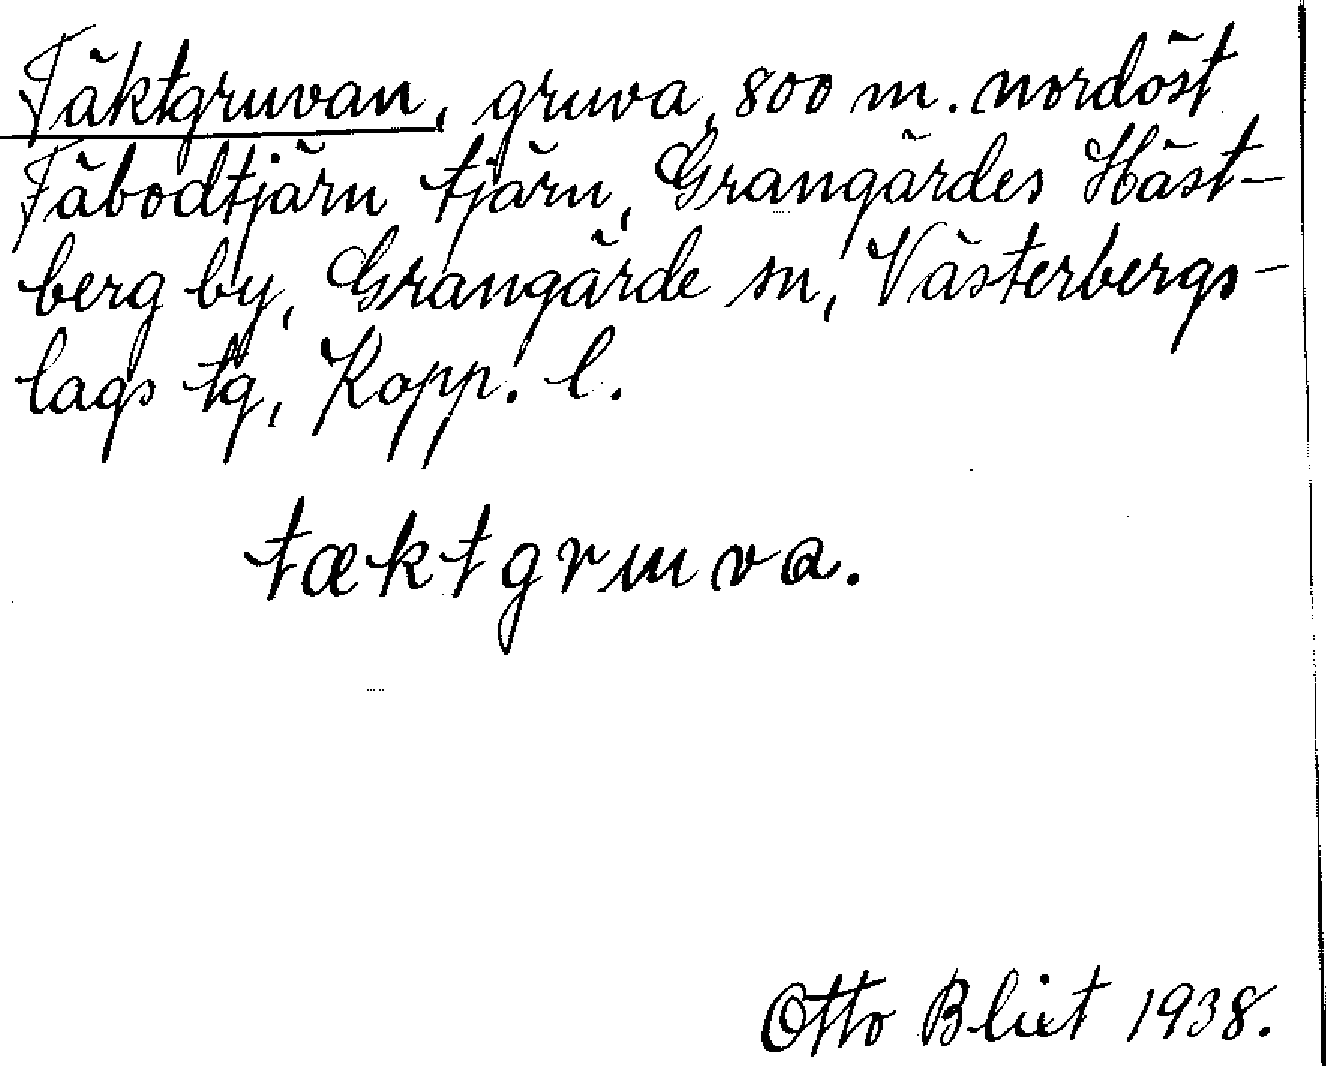 Täktgruvan, gruva, 800 m. nordöst
Fäbodtjärn tjärn, Grangärdes Häst-
berg by, Grangärde sn, Västerbergs-
lags tg, Kopp. l.
tæktgruva.
Otto Blixt 1938.